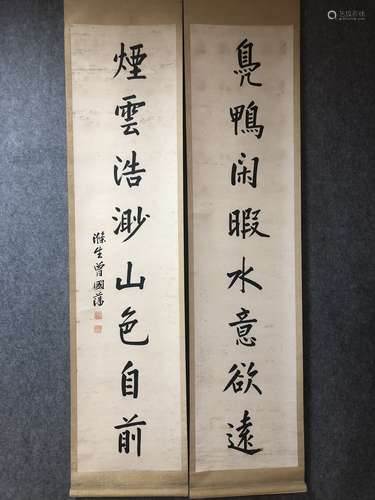 鳧鴨闲暇水意欲遠
煙雲浩渺山色自前
滌生曾國藩